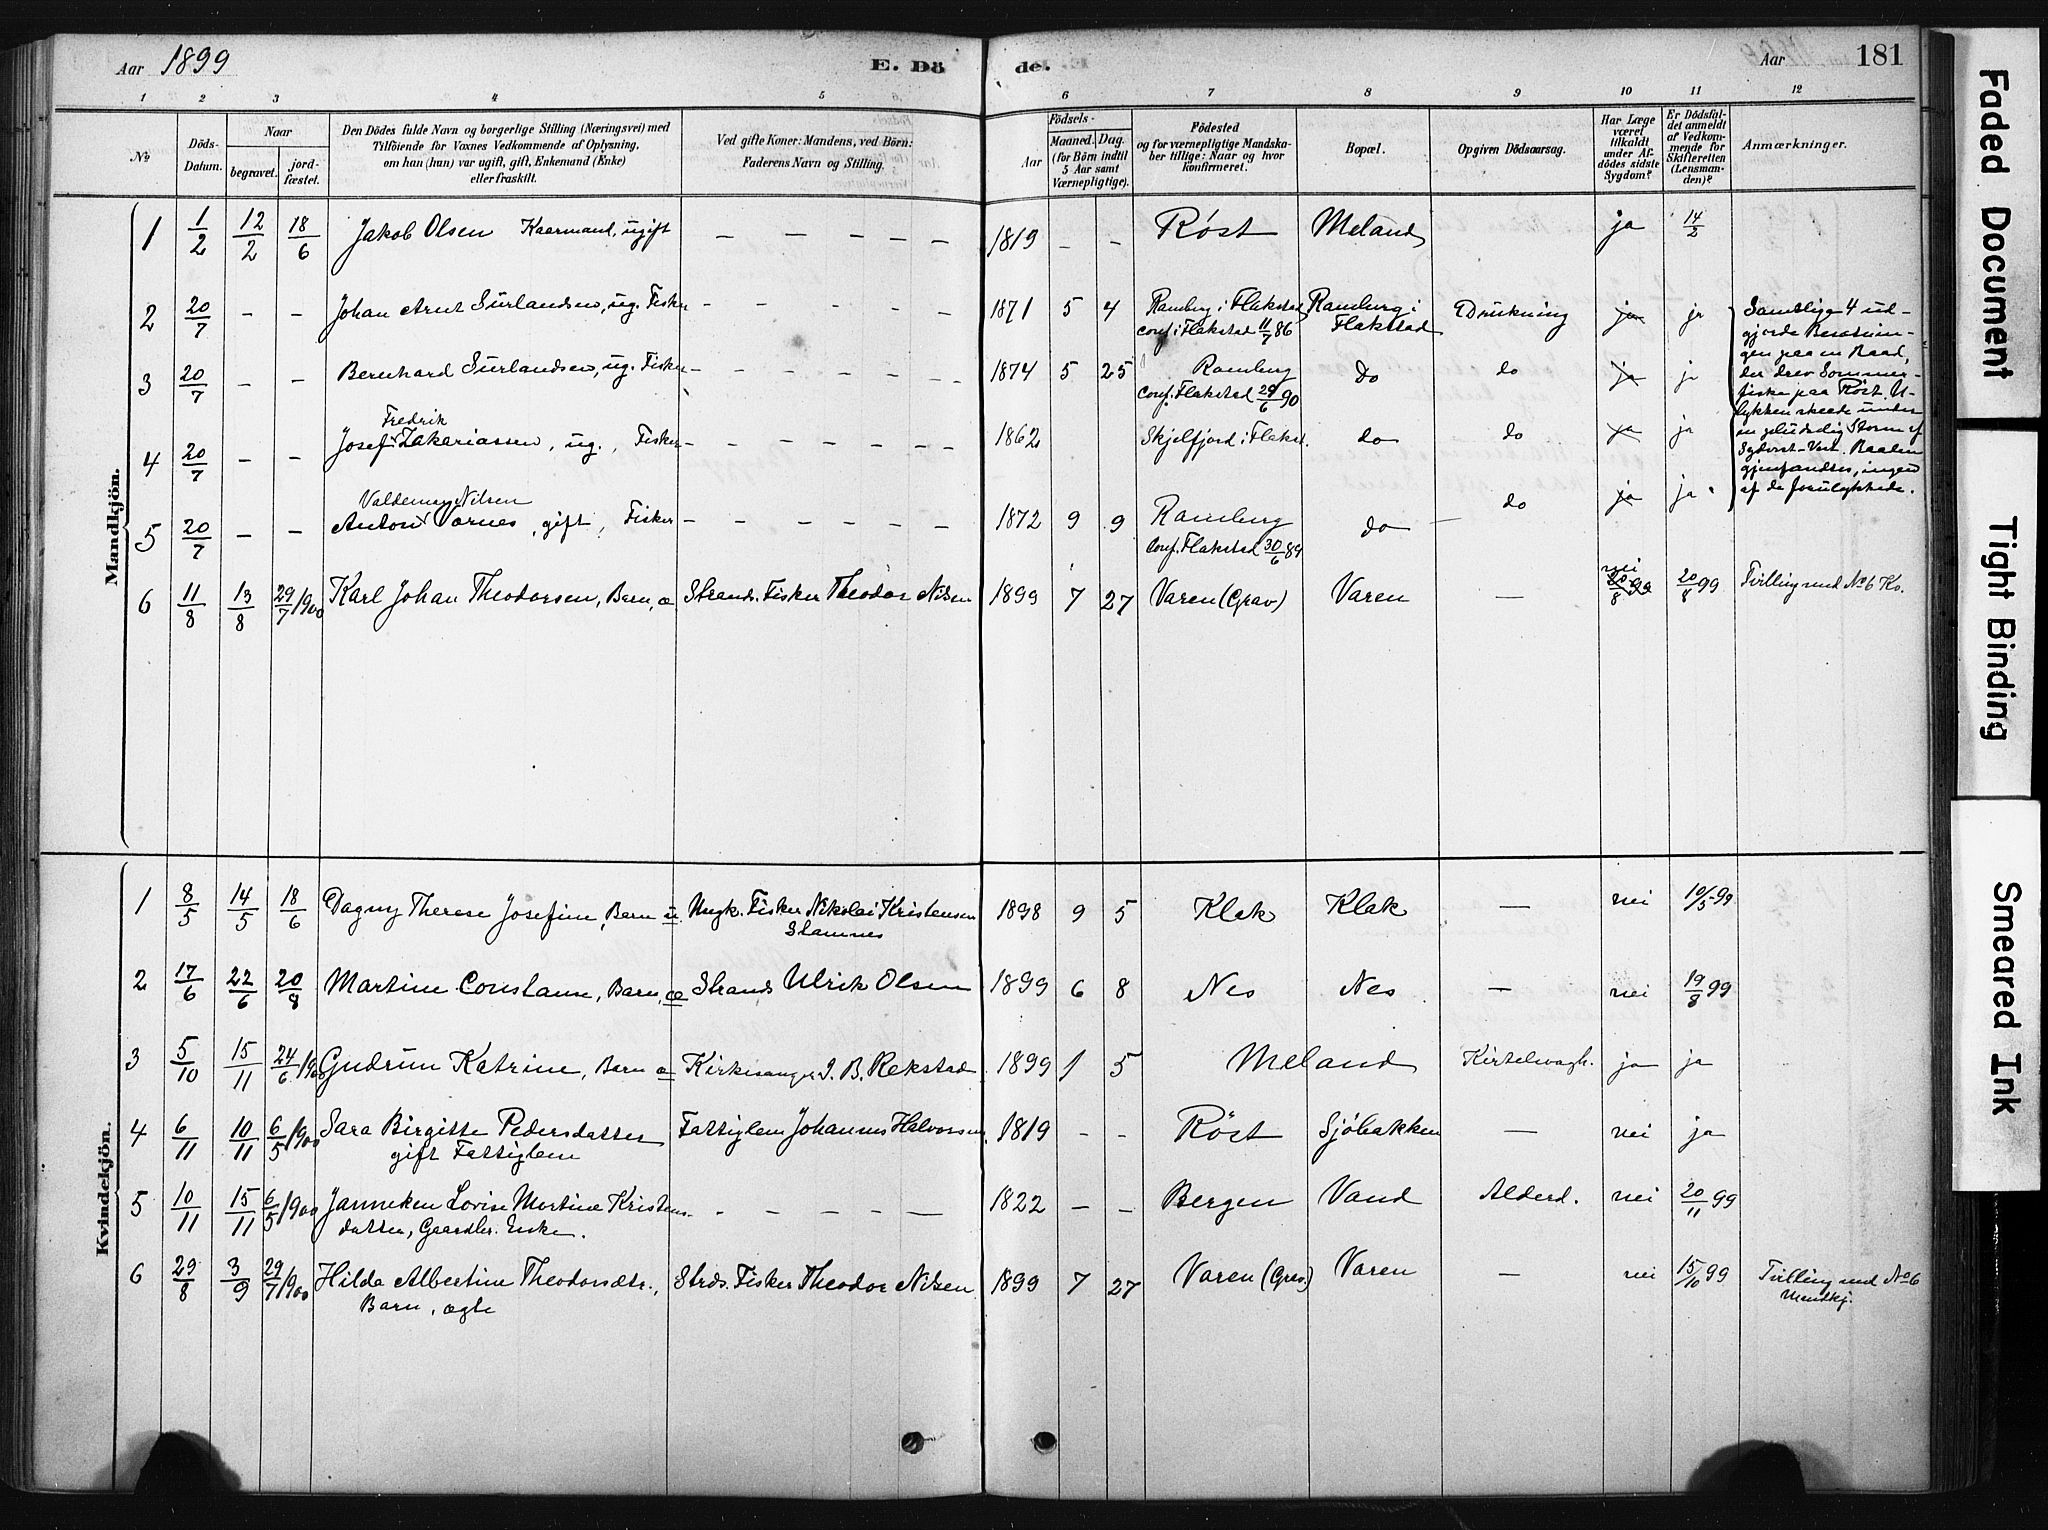 Aar 1899 E. Dö
de. Aar 181
1 2 3 4 5 6 7 8 9 10 11 12
№
Döds-Datum.
Naar
begravet. jord-fæstet.
Den Dödes fulde Navn og borgerlige Stilling (Næringsvei) med
Tilföiende for Voxnes Vedkommende af Oplysning,
om han (hun) var ugift, gift, Enkemand (Enke)
eller fraskilt.
Ved gifte Koner: Mandens, ved Börn:
Faderens Navn og Stilling.
Födsels-
Aar Maaned. Dag.
(for Börn indtil
5 Aar samt
Værnepligtige).
Födested
og for værnepligtige Mandska-
ber tillige: Naar og hvor
konfirmeret.
Bopæl.
Opgiven Dödsaarsag.
Har Læge
været
tilkaldt
under Af-
dödes sidste
Sygdom?
Er Dödsfal-
det anmeldt
af Vedkom-
mende for
Skifteretten
(Lensman-
den)?
Anmærkninger.
Mandkjön.
1 1/2 12/2 18/6 Jakob Olsen Kaarmand, ugift — — — — — 1819 – – Røst Meland ja 14/2
2 20/7 – – Johan Arnt Surlandsen, ug. Fisker – – – – – 1871 5 4 Ramberg i Flakstad Ramberg i Flakstad Drukning ja ja
conf. i Flakstad 11/7 86
3 20/7 – – Bernhard Surlandsen, ug. Fisker – – – – – 1874 5 25 Ramberg do do ja ja
conf. Flakstad 29/6 90
4 20/7 – – Josef Fredrik Zakariassen, ug., Fisker 1862 Skjelfjord i Flakst. do do ja ja
5 20/7 – – Anton Valdemar Nilsen Vornes, gift, Fisker – – – – – 1872 9 9 Ramberg do do ja ja
conf. Flakstad 30/6 89
Samtlige 4 ud-
gjorde Besætnin-
gen paa en Baad,
der drev Sommer-
fiske paa Røst. U-
lykken skede under
en pludselig Storm af
Sydvest-Vest. Baaden
gjenfandtes, ingen
af de forulykkede.
6 11/8 13/8 29/7/900 Karl Johan Theodorsen, Barn, æ Strands. Fisker Theodor Nilsen 1899 7 27 Varen (Grav) Varen — nei 20/8 99 20/8 99 Tvilling med No 6 Kv.
Kvindekjön.
1 8/5 14/5 18/6 Dagny Therese Josefine, Barn u Ungk. Fisker Nikolai Kristensen Stamnes 1898 9 5 Klak Klak — nei 10/5 99
2 17/6 22/6 20/8 Martine Constanse, Barn, æ Strands Ulrik Olsen 1899 6 8 Nes Nes — nei 19/8 99
3 5/10 15/11 24/6/900 Gudrun Katrine, Barn æ Kirkesanger J. B. Rekstad 1899 1 5 Meland Kirtelsvagh. ja ja
4 6/11 10/11 6/5/900 Sara Birgitte Pedersdatter Fattiglem Johannes Halvorsen 1819 – – Röst Sjöbakken — nei ja
gift Fattiglem
5 10/11 15/11 6/5/900 Janneken Lovise Martine Kristens- – – – – — 1822 – – Bergen Vand Alderd. nei 20/11 99
datter, Gaardbr. Enke.
6 29/8 3/9 29/7/900 Hilda Albertine Theodorsdtr., Strds. Fisker Theodor Nilsen 1899 7 27 Varen (Grav) Varen — nei 15/10 99 Tvilling med No 6 Mandkj.
Barn, ægte
Faded Document
Tight Binding
Smeared Ink